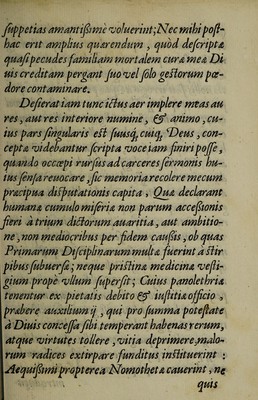 suppetias amantißimè voluerint; Nec mihi post-
hac erit amplius quærendum, quòd descriptæ
quasi pecudes familiam mortalem curæ meæ Di
uis creditam pergant suo vel solo gestorum pœ-
dore contaminare.
Desierat iam tunc ictus aer implere meas au
res, aut res interiore numine, & animo, cu-
ius pars singularis est suusq́, cuiq, Deus, con-
cepta videbantur scripta voce iam finiri posse,
quando occœpi rursus ad carceres sermonis hu-
ius sensa reuocare, sic memoria recolere mecum
præcipua disputationis capita, Quæ declarant
humanæ cumulo miseriæ non parum accessionis
fieri à trium dictorum auaritia, aut ambitio-
ne, non mediocribus per fidem caußis, ob quas
Primarum Disciplinarum multæ fuerint à stir
pibus subuersæ; neque pristinæ medicinæ vesti-
gium propè vllum supersit; Cuius panolethriâ
tenentur ex pietatis debito & iustitiæ officio,
præbere auxilium ij, qui pro summa potestate
à Diuis concessa sibi temperant habenas rerum,
atque virtutes tollere, vitia deprimere, malo-
rum radices extirpare funditus instituerint:
Aequißimi propterea Nomothetæ cauerint, ne
quis